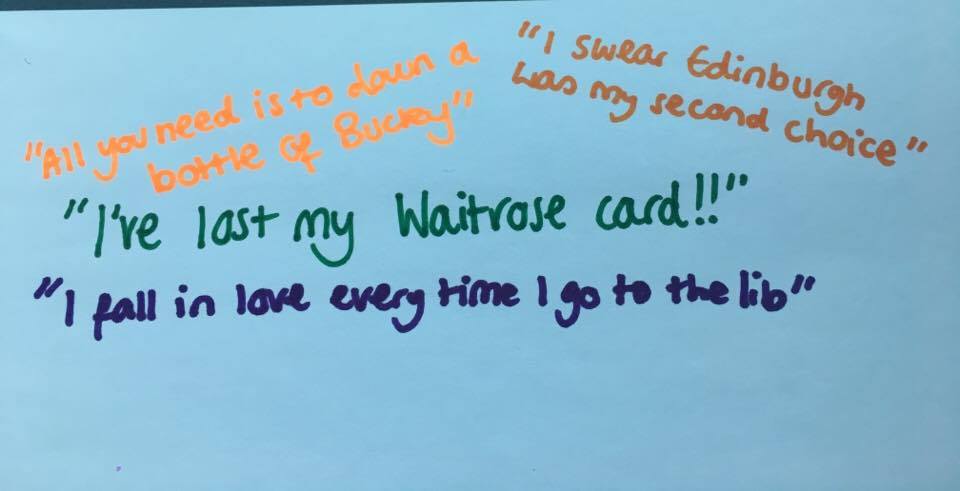 "All you need is to down a
bottle of Buckey"
"I swear Edinburgh
was my second choice"
"I've lost my Waitrose card!!"
"I fall in love every time I go to the lib"